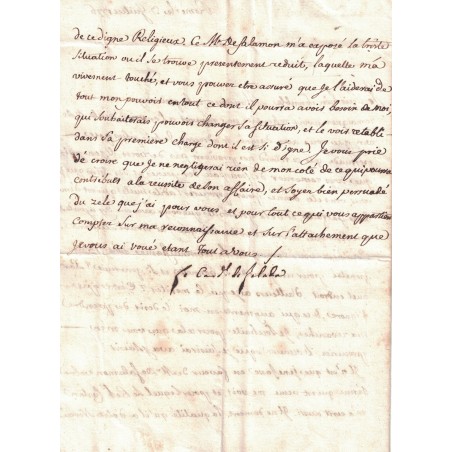 de ce digne Religieux. Ce Mr. De Salamon m'a exposé la triste
situation ou il se trouve presentement reduit, laquelle m'a
vivement touché, et vous pouvez être assuré que Je l'aiderai de
tout mon pouvoir en tout ce dont il pourra avoir besoin de moi,
qui souhaiterais pouvoir changer sa situation, et le voir retabli
dans sa première charge dont il est si digne. Je vous prie
de croire que Je ne negligerai rien de mon coté de ce qui pourra
contribuer a la reussite de son affaire, et soyez bien persuadé
du zele que j'ai pour vous et pour tout ce qui vous appartient
Comptez sur ma reconnaissance et sur l'attachement que
Je vous ai voué etant tout a vous. /.
le Card. de Zelada